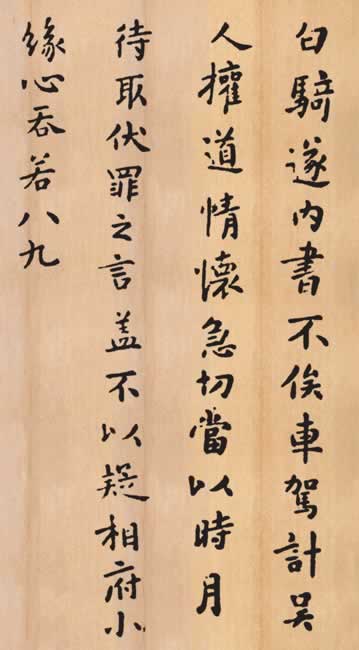 白騎遂內書不俟車駕計吳
人權道情懷急切當以時月
待取伏罪之言蓋不以疑相府小
緣心吞若八九